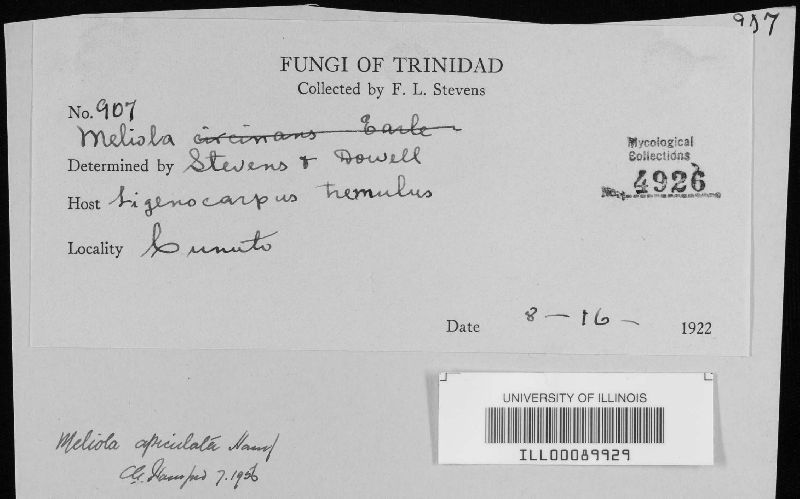 907
FUNGI OF TRINIDAD
Collected by F. L. Stevens
No. 907
Meliola circinans Earle
Determined by Stevens & Dowell
Mycological
Collections
No. 4926
Host tremulus
Locality Cumuto
Date 8-16- 1922
UNIVERSITY OF ILLINOIS
ILL00089929
Meliola apiculata Hansf
7.1956